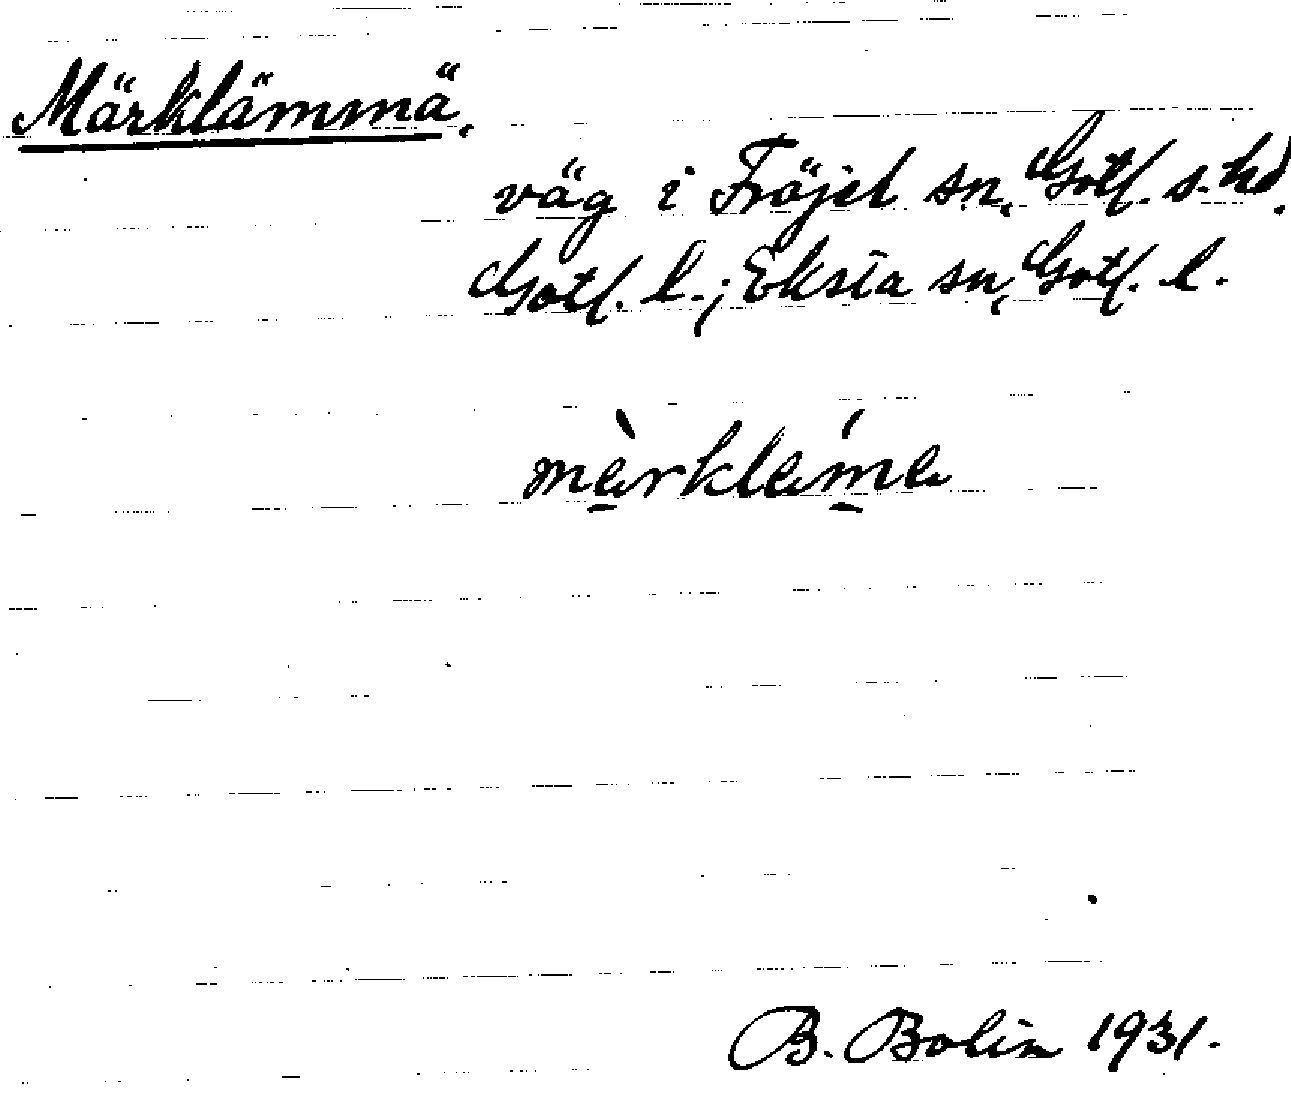 Märklämmä.
väg i Fröjel sn, Gotl. s. hd.
Gotl. l.; Eksta sn, Gotl. l.
mèrkleḿe
B. Bolin 1931.